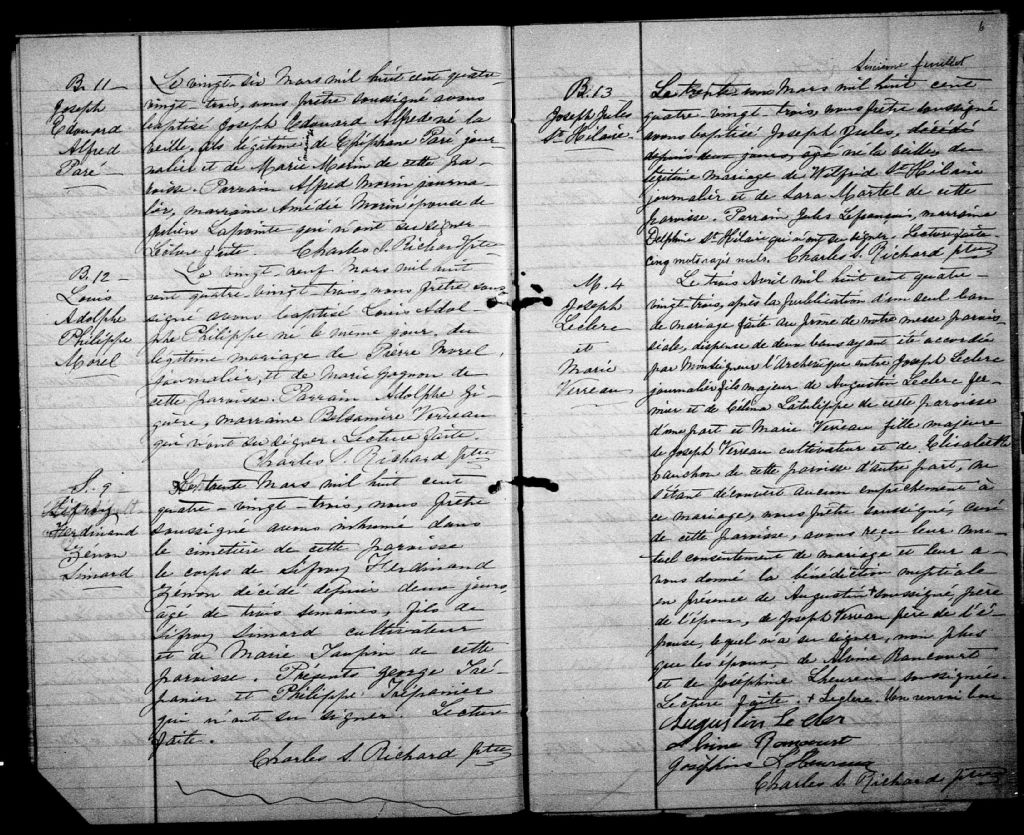 B. 11
Joseph
Edouard
Alfred
Paré
Le vingt-six Mars mil huit cent quatre-
vingt-trois, nous prêtre soussigné avons
baptisé Joseph Edouard Alfred né la
veille, fils légitime de Epiphane Paré jour-
nalier et de Marie Morin de cette pa-
roisse. Parrain Alfred Morin journa-
lier, marraine Amédie Morin épouse de
Lapointe qui n'ont su signer
Lecture faite. Charles S. Richard ptre
B. 12
Louis
Adolphe
Philippe
Morel
Le vingt neuf Mars mil huit
cent quatre-vingt-trois, nous prêtre sous-
signé avons baptisé Louis Adol-
phe Philippe né le même jour, du
légitime mariage de Pierre Morel,
journalier, et de Marie Gagnon de
cette paroisse. Parrain Adolphe Gi-
guère, marraine Belsamire Verreau
qui n'ont su signer. Lecture faite.
Charles S. Richard ptre
S. 9
Sifroy
Ferdinand
Zénon
Simard
Le trente Mars mil huit cent
quatre-vingt-trois, nous prêtre
soussigné avons inhumé dans
le cimetière de cette paroisse
le corps de Sifroy Ferdinand
Zénon décédé depuis deux jours,
agé de trois semaines, fils de
Sifroy Simard cultivateur
et de Marie Taupin de cette
paroisse. Présents george Tré-
panier et Philippe Trépanier
qui n'ont su signer. Lecture
faite.
Charles S. Richard ptre
6
Sixième feuillet
B. 13
Joseph Jules
St Hilaire
Le trente un Mars mil huit cent
quatre-vingt-trois, nous prêtre soussigné
avons baptisé Joseph Jules, décédé
depuis deux jours, agé né la veille, du
légitime mariage de Wilfrid St Hilaire
journalier et de Sara Martel de cette
paroisse. Parrain Jules, marraine
Delphine St Hilaire qui n'ont su signer. Lecture faite
cinq mots rayés nuls. Charles S. Richard ptre
M. 4
Joseph
Leclerc
et
Marie
Verreau
Le trois Avril mil huit cent quatre-
vingt-trois, après la publication d'un seul ban
de mariage faite au prône de notre messe parois-
siale, dispense de deux bans ayant été accordée
par Monseigneur l'Archevêque entre Joseph Leclerc
journalier fils majeur de Augustin Leclerc fer-
mier et de Célina Latulippe de cette paroisse
d'une part et Marie Verreau fille majeure
de Joseph Verreau cultivateur et de Elisabeth
Vanchon de cette paroisse d'autre part, ne
s'étant découvert aucun empêchement à
ce mariage, nous prêtre soussigné, curé
de cette paroisse, avons reçu leur mu-
tuel consentement de mariage et leur a-
vons donné la bénédiction nuptiale
en présence de Augustin + soussigné, père
de l'époux, de Joseph Verreau père de l'é-
pouse, lequel n'a su signer, non plus
que les époux, de Alvine Rancourt
et de Joséphine Lheureux soussignées
Lecture faite. + Leclerc. Un renvoi bon
Augustin Lecler
Alvine Rancourt
Josephine Lheureux
Charles S. Richard ptre